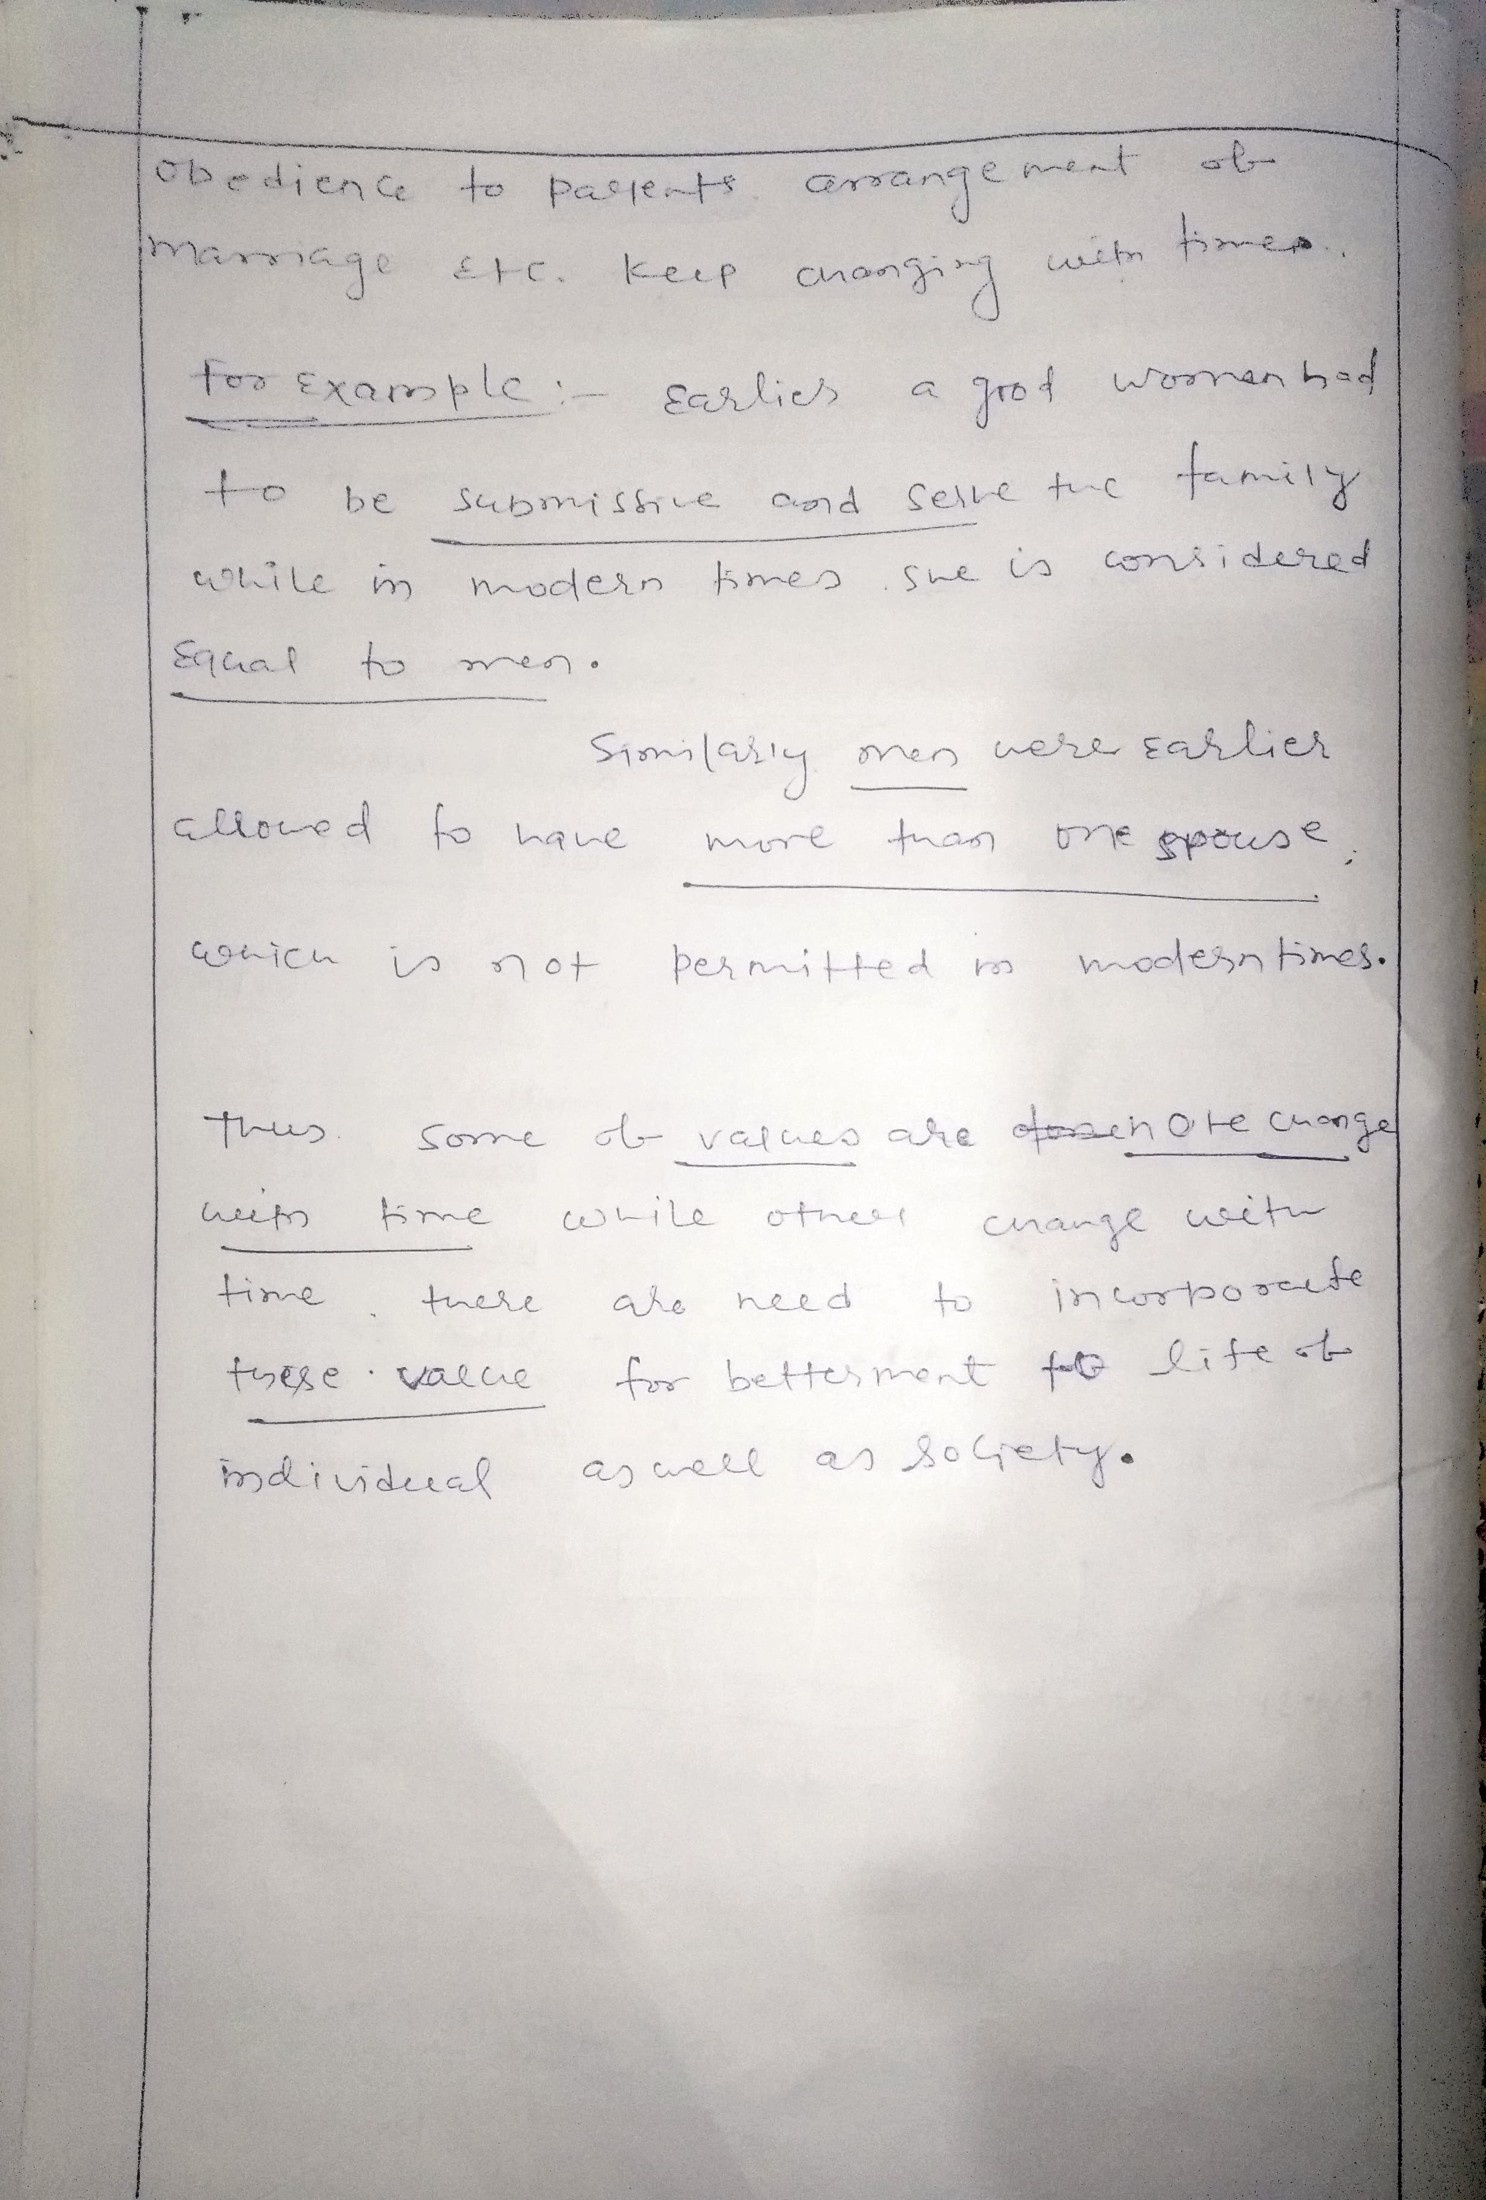 Obedience to parents arrangement of
marriage etc. keep changing with times.
For Example :- Earlier a good women had
to be submissive and serve the family
while in modern times she is considered
Equal to men.
Similarly men were Earlier
allowed to have more than one spouse,
which is not permitted in modern times.
Thus some of values are note change
with time while other change with
time. there are need to incorporate
these value for betterment to life of
individual as well as society.